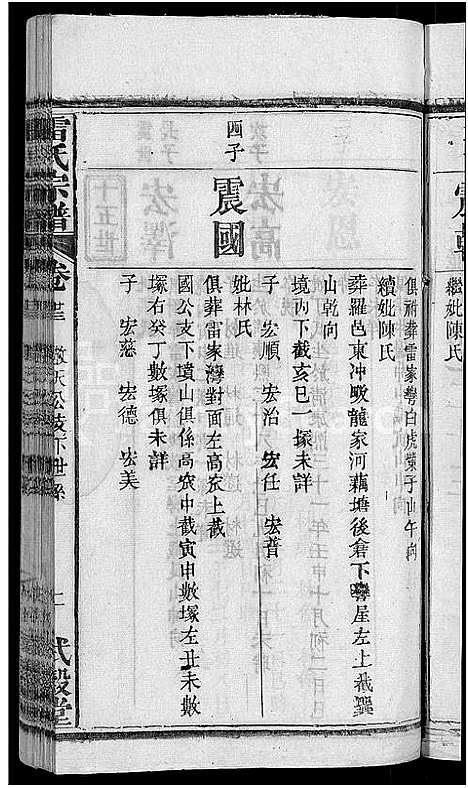 繼妣陳氏
俱祔葬雷家灣白虎業子山午向
續妣陳氏
葬羅邑東冲畈龍家河藕塘後倉下灣屋左上截巽
山乾向
境内下截亥巳一塚未詳
子 宏順 宏治 宏任 宏普
四子
震國
妣林氏
俱葬雷家灣對面左高㟁上截
國公支下墳山俱係高㟁中截寅申數塚左丑未數
塚右癸丁數塚俱未詳
子 宏慈 宏德 宏美
雷氏宗譜
卷 敬天公支下世系
式穀堂